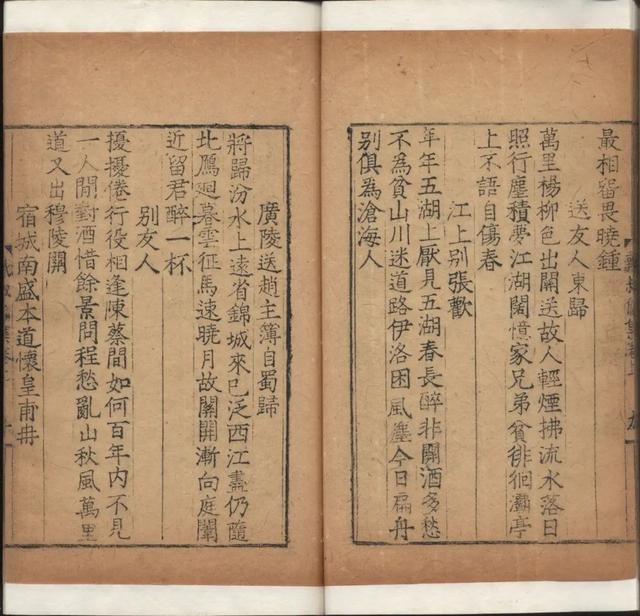 最相留畏曉鍾
送友人東歸
萬里楊柳色出關送故人輕煙拂流水落日
照行塵積夢江湖闊憶家兄弟貧徘徊灞亭
上不語自傷春
江上别張歡
年年五湖上厭見五湖春長醉非關酒多愁
不為貧山川迷道路伊洛困風塵今日扁舟
别俱為滄海人
廣陵送趙主簿自蜀歸
將歸汾水上遠省錦城來已泛西江盡仍隨
北鴈迴暮雲征馬速曉月故關開漸向庭闈
近留君醉一杯
别友人
擾擾倦行役相逢陳蔡間如何百年内不見
一人閒對酒惜餘景問程愁亂山秋風萬里
道又出穆陵關
宿城南盛本道懷皇甫冉